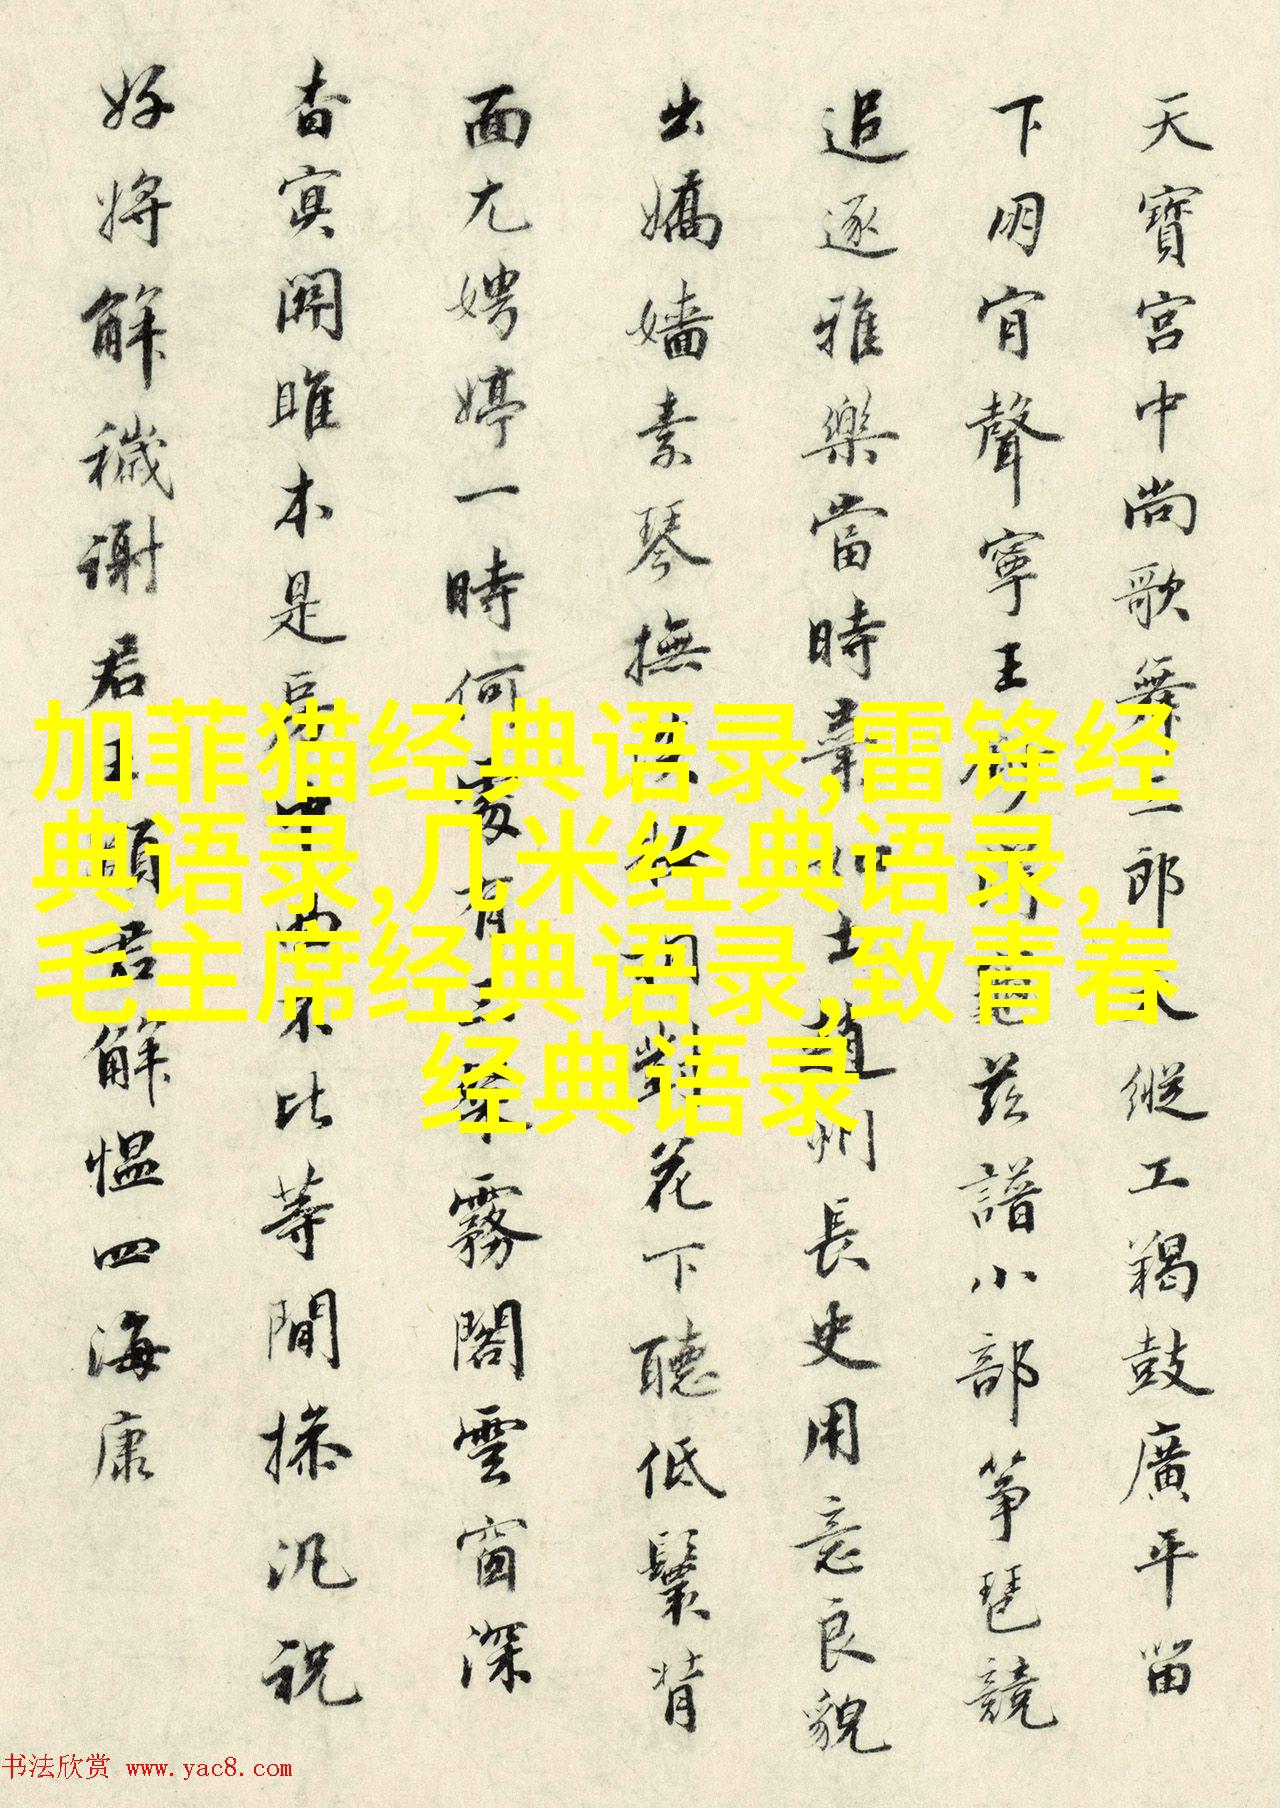 天寶宮中尚歌舞三郎縱工羯鼓廣平畱
下明宵聲寧王茲譜小部箏琶競
追逐雅樂當時士趙州長史用意良貌
出嬌嬙素琴撫對花下聽低鬟背
面尤娉婷一時何家有霧閣雲窗深
杳寞關雎本是比等閒操汎祝
好將解穢謝君王願君解慍四海康
加菲猫经典语录,雷锋经
典语录,几米经典语录,
毛主席经典语录,致青春
经典语录
书法欣赏 www.yac8.com